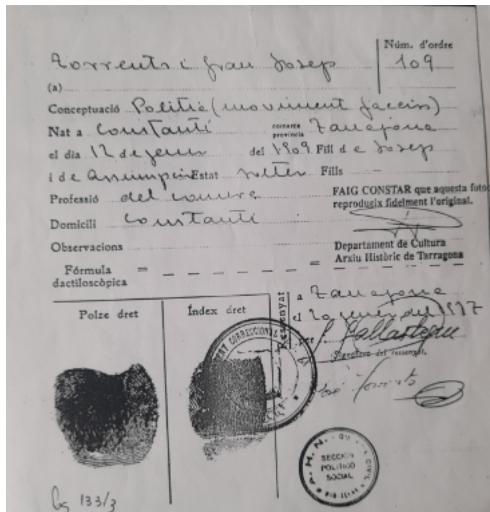 Núm. d'ordre
Torrents i Grau Josep 109
(a)
Conceptuació Politic (moviment facciós)
Nat a Constantí comarca provincia Tarragona
el dia 12 de gener del 1909 Fill de Josep
i de Assumpció Estat solter Fills
Professió del comerç
FAIG CONSTAR que aquesta foto
reprodueix fidelment l'original.
Domicili Constantí
Observacions
Departament de Cultura
Arxiu Històric de Tarragona
Fórmula dactiloscòpica = =
Polze dret
Índex dret
Ressenyat
a Tarragona
el 20 gener del 1937
per
(Signatura del ressenyat)
José Torrents
CORRECCIONAL
A. H. N.
SECCION
POLITICO
SOCIAL
Lg 133/3